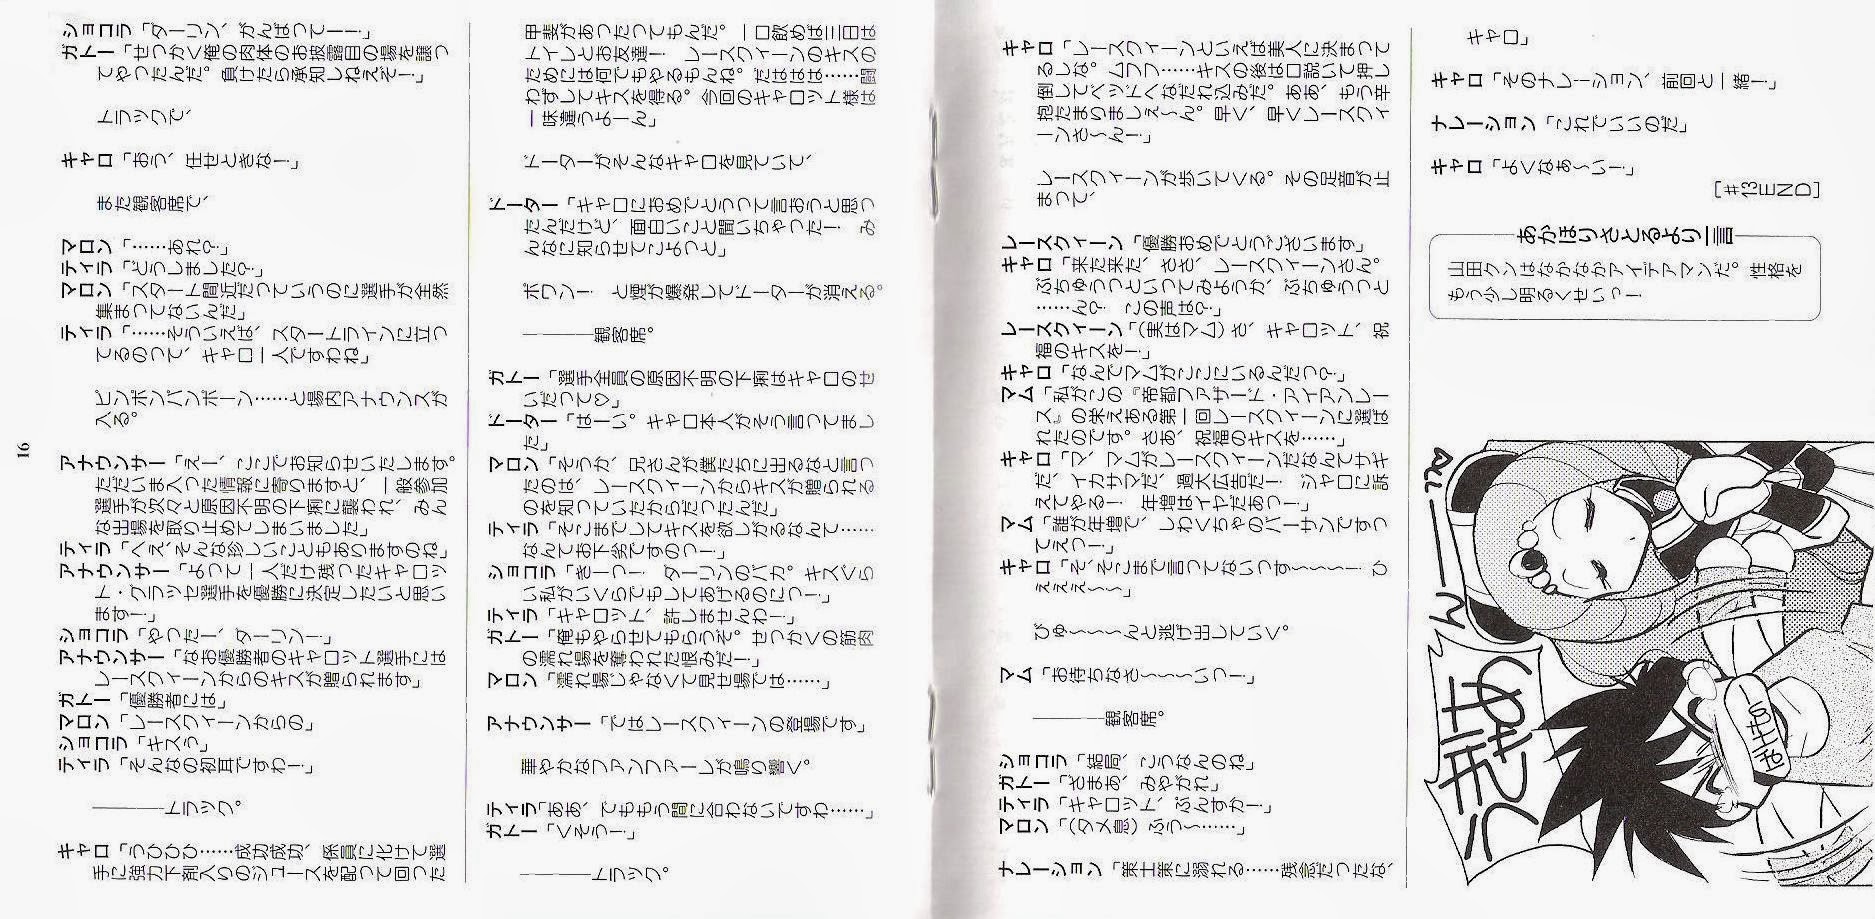 ショコラ「ダーリン、がんばってー！」
ガトー「せっかく俺の肉体のお披露目の場を譲っ
てやったんだ。負けたら承知しねえぞー！」
トラックで、
キャロ「おう、任せときなー！」
また観客席で、
マロン「……あれ？」
ティラ「どうしました？」
マロン「スタート間近だっていうのに選手が全然
集まってないんだ」
ティラ「……そういえば、スタートラインに立っ
てるのって、キャロ一人ですわね」
ピンポンパンポーン……と場内アナウンスが
入る。
アナウンサー「えー、ここでお知らせいたします。
ただいま入った情報に寄りますと、一般参加
選手が次々と原因不明の下痢に襲われ、みん
な出場を取り止めてしまいました」
ティラ「へえ、そんな珍しいこともありますのね」
アナウンサー「よって一人だけ残ったキャロッ
ト・グラッセ選手を優勝に決定したいと思い
ます！」
ショコラ「やったー、ダーリン！」
アナウンサー「なお優勝者のキャロット選手には
レースクィーンからのキスが贈られます」
ガトー「優勝者には」
マロン「レースクィーンからの」
ショコラ「キスぅ」
ティラ「そんなの初耳ですわー！」
――――トラック。
キャロ「うひひひ……成功成功、係員に化けて選
手に強力下剤入りのジュースを配って回った
16
甲斐があったってもんだ。一口飲めば三日は
トイレとお友達！　レースクィーンのキスの
ためには何でもやるもんね。だははは……闘
わずしてキスを得る。今回のキャロット様は
一味違うよーん」
ドーターがそんなキャロを見ていて、
ドーター「キャロにおめでとうって言おうと思っ
たんだけど、面白いこと聞いちゃった！　み
んなに知らせてこよっと」
ボワン！　と煙が爆発してドーターが消える。
――――観客席。
ガトー「選手全員の原因不明の下痢はキャロのせ
いだって♡」
ドーター「はーい。キャロ本人がそう言ってまし
た」
マロン「そうか、兄さんが僕たちに出るなと言っ
たのは、レースクィーンからキスが贈られる
のを知っていたからだったんだ」
ティラ「そこまでしてキスを欲しがるなんて……
なんてお下劣ですのっー！」
ショコラ「きーっ！　ダーリンのバカ。キスぐら
い私がいくらでもしてあげるのにっ！」
ティラ「キャロット、許しませんわー！」
ガトー「俺もやらせてもらうぞ。せっかくの筋肉
の濡れ場を奪われた恨みだー！」
マロン「濡れ場じゃなくて見せ場では……」
アナウンサー「ではレースクィーンの登場です」
華やかなファンファーレが鳴り響く。
ティラ「ああ、でももう間に合わないですわ……」
ガトー「くそうー！」
――――トラック。
キャロ「レースクィーンといえば美人に決まって
るしな。ムフフ……キスの後は口説いて押し
倒してベッドへなだれ込みだ。ああ、もう辛
抱たまりましぇ～ん。早く、早くレースクィ
ーンさ～ん！」
レースクィーンが歩いてくる。その足音が止
まって、
レースクィーン「優勝おめでとうございます」
キャロ「来た来た、ささ、レースクィーンさん。
ぶちゅうっといってみようか、ぶちゅうっと
……ん？　この声は？」
レースクィーン「（実はマム）さ、キャロット、祝
福のキスを！」
キャロ「なんでマムがここにいるんだっ？」
マム「私がこの『帝都ファザード・アイアンレー
ス』の栄えある第一回レースクィーンに選ば
れたのです。さあ、祝福のキスを……」
キャロ「マ、マムがレースクィーンだなんてサギ
だ、イカサマだ、過大広告だー！　ジャロに訴
えてやる！　年増はイヤだあっー！」
マム「誰が年増で、しわくちゃのバーサンですっ
てえっー！」
キャロ「そ、そこまで言ってないっす～～～！　ひ
えええ～～」
びゅ～～～んと逃げ出していく。
マム「お待ちなさ～～～いっー！」
――――観客席。
ショコラ「結局、こうなんのね」
ガトー「ざまあ、みやがれ」
ティラ「キャロット、ぶんすかー！」
マロン「（タメ息）ふう～……」
ナレーション「策士策に溺れる……残念だったな、
キャロ」
キャロ「そのナレーション、前回と一緒ー！」
ナレーション「これでいいのだ」
キャロ「よくなぁ～い！」
［＃13END］
あかほりさとるより一言
山田クンはなかなかアイデアマンだ。性格を
もう少し明るくせいっ！